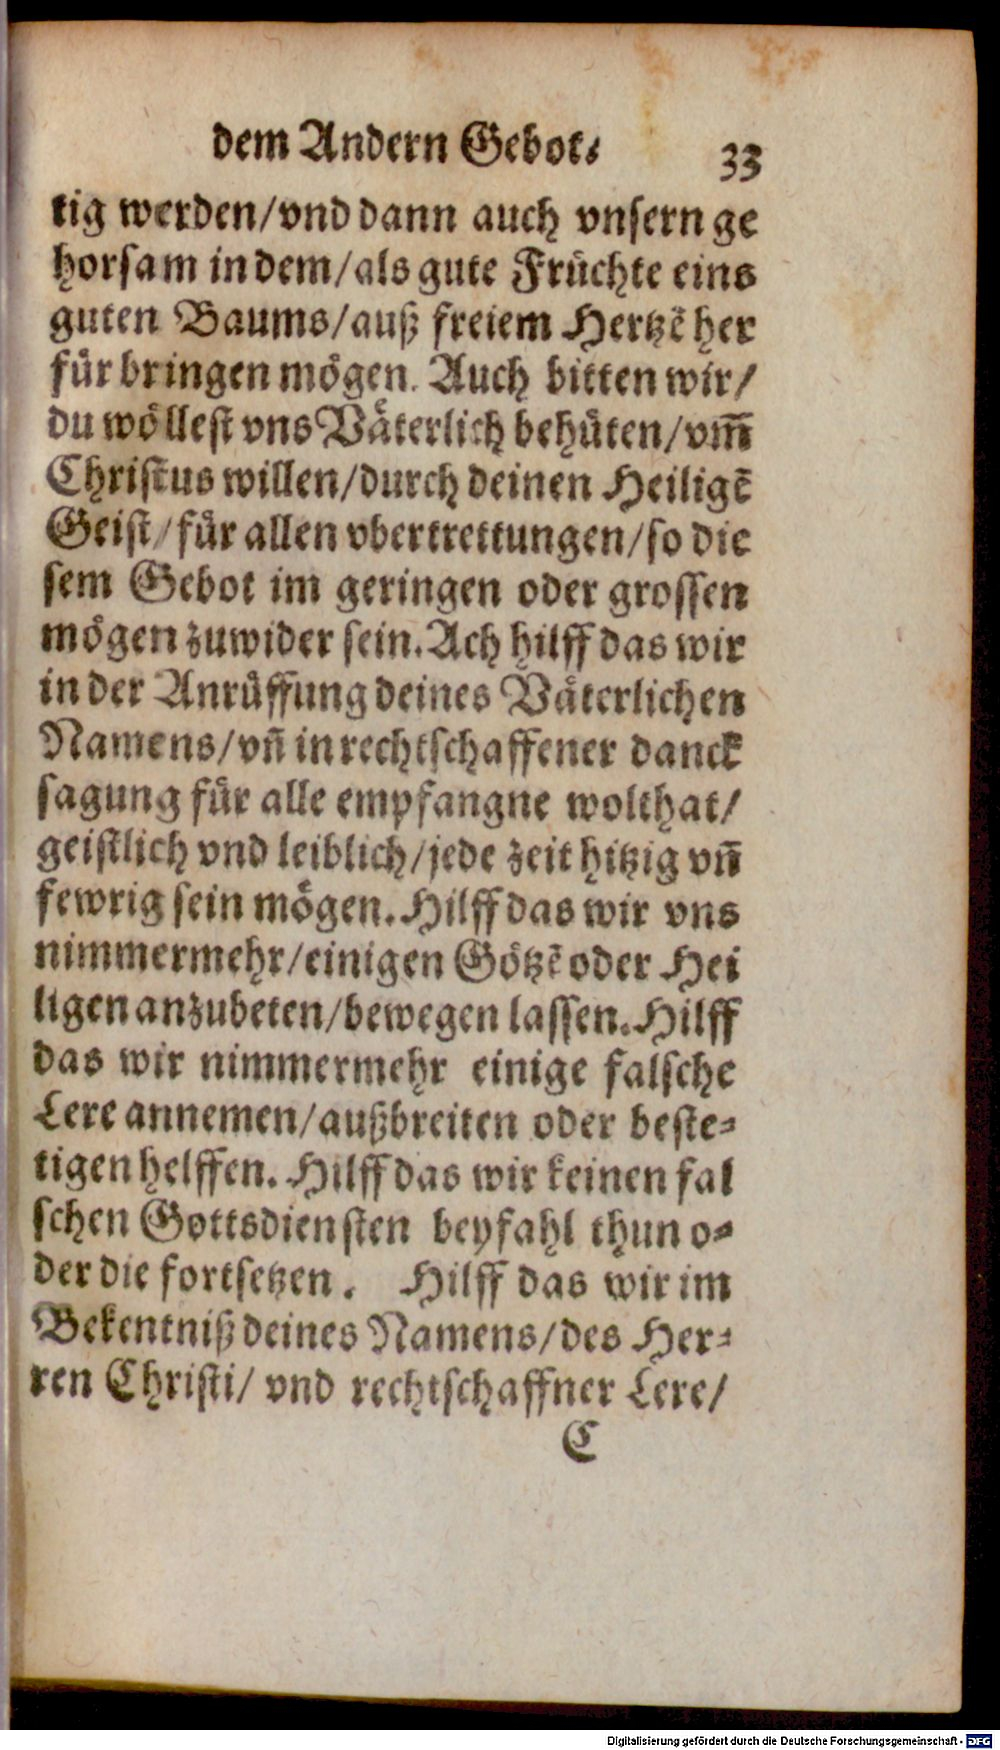 dem Andern Gebot. 33
tig werden/vnd dann auch vnsern ge
horsam in dem/als gute Früchte eins
guten Baums/auß freiem Hertzē her
für bringen mögen. Auch bitten wir/
du wöllest vns Väterlich behüten/vm̃
Christus willen/durch deinen Heiligē
Geist/für allen vbertrettungen/so die
sem Gebot im geringen oder grossen
mögen zuwider sein. Ach hilff das wir
in der Anrüffung deines Väterlichen
Namens/vñ in rechtschaffener danck
sagung für alle empfangne wolthat/
geistlich vnd leiblich/jede zeit hitzig vñ
fewrig sein mögen. Hilff das wir vns
nimmermehr/einigen Götzē oder Hei
ligen anzubeten/bewegen lassen. Hilff
das wir nimmermehr einige falsche
Lere annemen/außbreiten oder beste-
tigen helffen. Hilff das wir keinen fal
schen Gottsdiensten beyfahl thun o-
der die fortsetzen. Hilff das wir im
Bekentniß deines Namens/des Her-
ren Christi/ vnd rechtschaffner Lere/
C
Digitalisierung gefördert durch die Deutsche Forschungsgemeinschaft - DFG